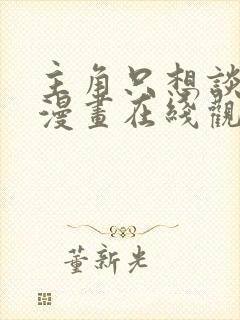 主角只想談
漫畫在綫觀
董新光